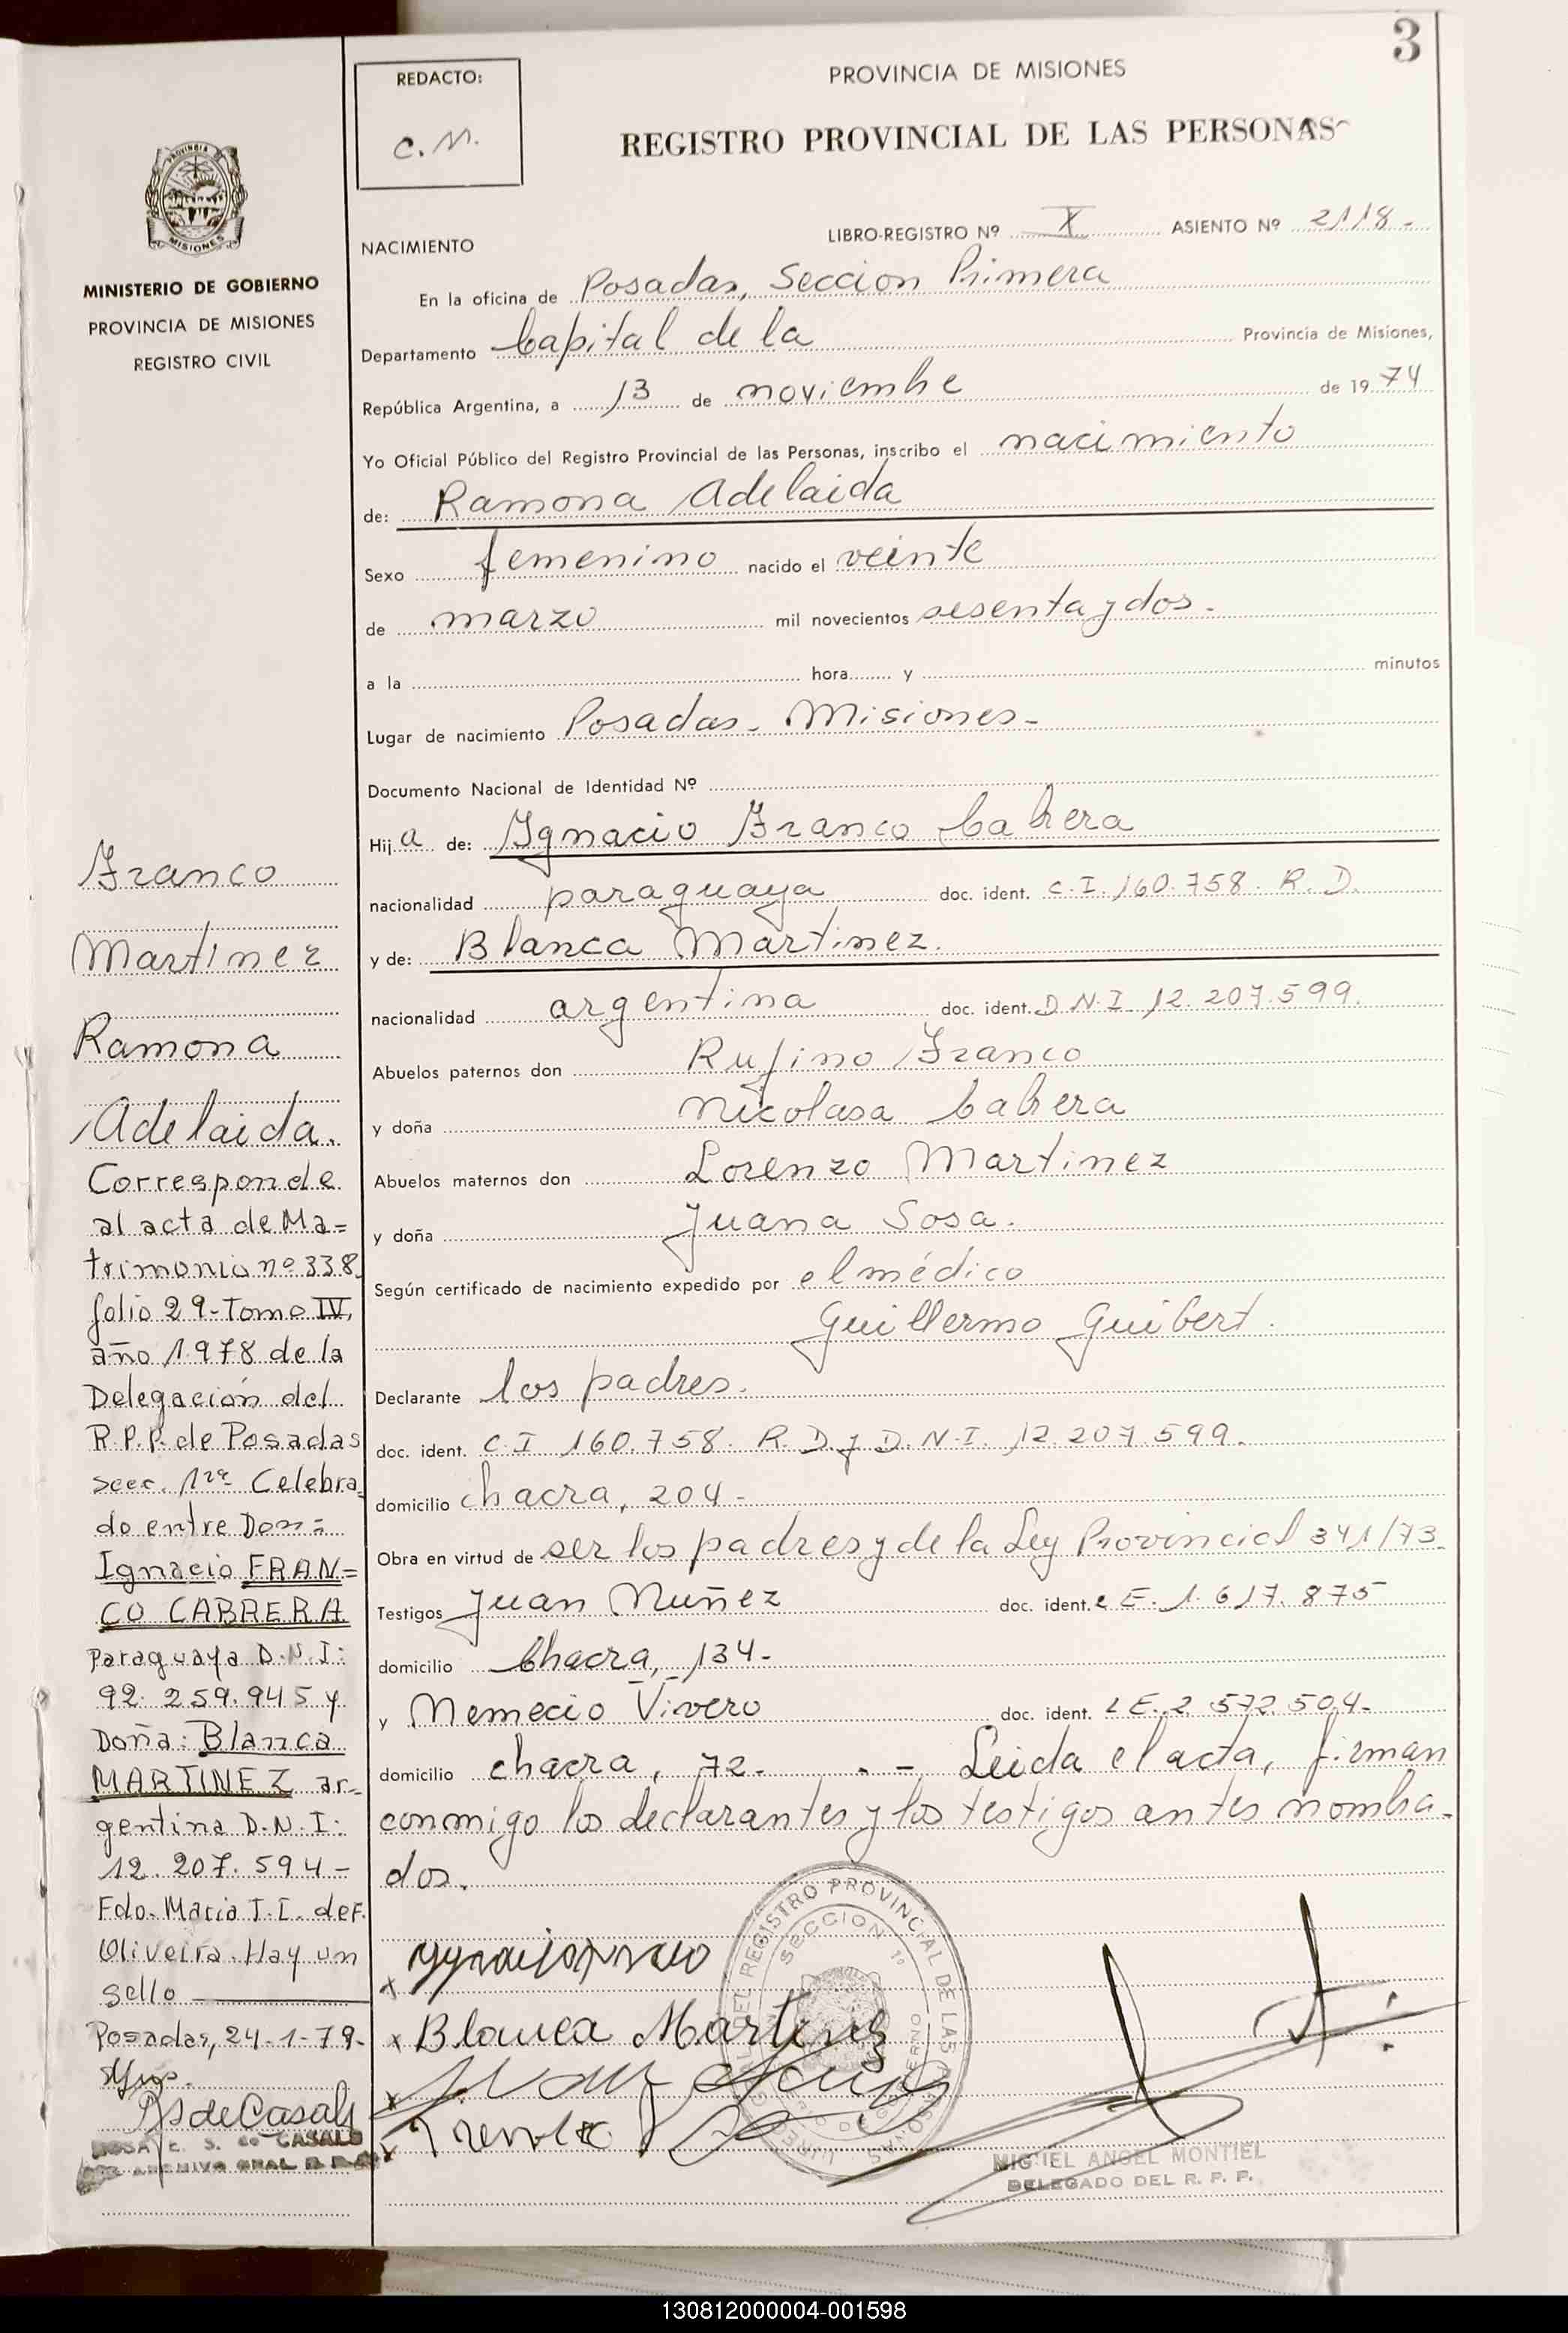 3
REDACTO:
C. M.
PROVINCIA DE MISIONES
REGISTRO PROVINCIAL DE LAS PERSONAS
PROVINCIA
MISIONES
MINISTERIO DE GOBIERNO
PROVINCIA DE MISIONES
REGISTRO CIVIL
Franco
Martinez
Ramona
Adelaida.
Corresponde
al acta de Ma=
trimonio nº 338,
folio 29-Tomo IV,
año 1.978 de la
Delegación del
R.P.P. de Posadas
secc. 1ra Celebra
do entre Don=
Ignacio FRAN=
CO CABRERA
Paraguaya D.N.I:
92. 259.945 y
Doña: Blanca
MARTINEZ ar-
gentina D.N.I:
12. 207. 594-
Fdo. Maria T. I. de F.
Oliveira. Hay un
sello
Posadas, 24-1-79.
RS de Casals
ROSA E. S. de CASALS
ARCHIVO GRAL R.P.P.
LIBRO-REGISTRO Nº X ASIENTO Nº 2118-
NACIMIENTO
En la oficina de Posadas, Seccion Primera
Departamento Capital de la Provincia de Misiones,
República Argentina, a 13 de noviembre de 19 74
Yo Oficial Público del Registro Provincial de las Personas, inscribo el nacimiento
de: Ramona Adelaida
Sexo femenino nacido el veinte
de marzo mil novecientos sesenta y dos.
a la hora y minutos
Lugar de nacimiento Posadas- Misiones-
Documento Nacional de Identidad Nº
Hij a de: Ygnacio Franco Cabrera
nacionalidad paraguaya doc. ident. C.I. 160.758. R. D.
y de: Blanca Martinez.
nacionalidad argentina doc. ident. D.N.I. 12.207.599.
Abuelos paternos don Rufino Franco
y doña Nicolasa Cabrera
Abuelos maternos don Lorenzo Martinez
y doña Juana Sosa.
Según certificado de nacimiento expedido por el médico
Guillermo Guibert.
Declarante los padres.
doc. ident. C.I 160.758. R.D. y D.N.I. 12.207.599.
domicilio chacra, 204-
Obra en virtud de ser los padres y de la Ley Provincial 341/73-
Testigos Juan Nuñez doc. ident. L E. 1.617.875
domicilio Chacra, 134-
y Nemecio Vivero doc. ident. L E. 2.572.504-
domicilio chacra, 72. - - Leida el acta, firman
conmigo los declarantes y los testigos antes nombra-
dos.
x
x Blanca Martinez
x
x
DEL REGISTRO PROVINCIAL DE LAS
SECCION 1º
MIGUEL ANGEL MONTIEL
DELEGADO DEL R. P. P.
130812000004-001598